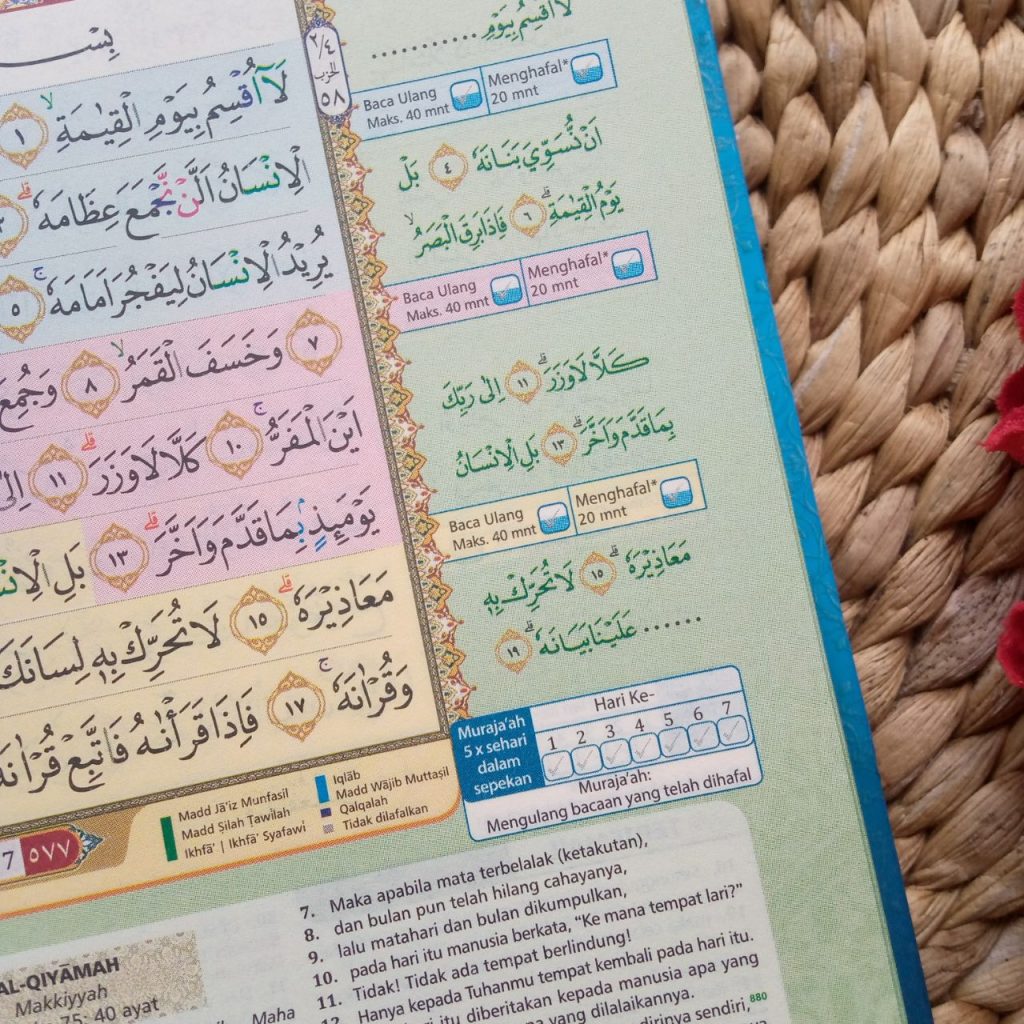 بِسْـ
٢/٤
الحزب
٥٨
لَآ اُقْسِمُ بِيَوْمِ الْقِيٰمَةِۙ ١
الْاِنْسَانُ اَلَّنْ نَّجْمَعَ عِظَامَهٗ ۗ ٣
يُرِيْدُ الْاِنْسَانُ لِيَفْجُرَ اَمَامَهٗ ۚ ٥
٧ وَخَسَفَ الْقَمَرُۙ ٨ وَجُمِعَ
اَيْنَ الْمَفَرُّ ۚ ١٠ كَلَّا لَا وَزَرَ ۗ ١١ اِلٰى
يَوْمَىِٕذٍ ۢ بِمَا قَدَّمَ وَاَخَّرَ ۗ ١٣ بَلِ
مَعَاذِيْرَهٗ ۗ ١٥ لَا تُحَرِّكْ بِهٖ لِسَانَكَ
وَقُرْاٰنَهٗ ۚ ١٧ فَاِذَا قَرَأْنٰهُ فَاتَّبِعْ قُرْاٰنَهٗ
لَآ اُقْسِمُ بِيَوْمِ ............
Baca Ulang
Maks. 40 mnt
Menghafal*
20 mnt
اَنْ نُّسَوِّيَ بَنَانَهٗ ٤ بَلْ
يَوْمُ الْقِيٰمَةِ ۗ ٦ فَاِذَا بَرِقَ الْبَصَرُۙ
Baca Ulang
Maks. 40 mnt
Menghafal*
20 mnt
كَلَّا لَا وَزَرَ ۗ ١١ اِلٰى رَبِّكَ
بِمَا قَدَّمَ وَاَخَّرَ ۗ ١٣ بَلِ الْاِنْسَانُ
Baca Ulang
Maks. 40 mnt
Menghafal*
20 mnt
مَعَاذِيْرَهٗ ۗ ١٥ لَا تُحَرِّكْ بِهٖ
...... عَلَيْنَا بَيَانَهٗ ۗ ١٩
Muraja'ah
5 x sehari
dalam
sepekan
Hari Ke-
1 2 3 4 5 6 7
Muraja'ah:
Mengulang bacaan yang telah dihafal
Madd Jā'iz Munfasil
Madd Ṣilah Ṭawīlah
Ikhfā' | Ikhfā' Syafawī
Iqlāb
Madd Wājib Muttaṣil
Qalqalah
Tidak dilafalkan
7 ٥٧٧
AL-QIYĀMAH
Makkiyyah
75: 40 ayat
Maha
7. Maka apabila mata terbelalak (ketakutan),
8. dan bulan pun telah hilang cahayanya,
9. lalu matahari dan bulan dikumpulkan,
10. pada hari itu manusia berkata, “Ke mana tempat lari?”
11. Tidak! Tidak ada tempat berlindung!
12. Hanya kepada Tuhanmu tempat kembali pada hari itu.
hari itu diberitakan kepada manusia apa yang
yang dilalaikannya. 880
dirinya sendiri,